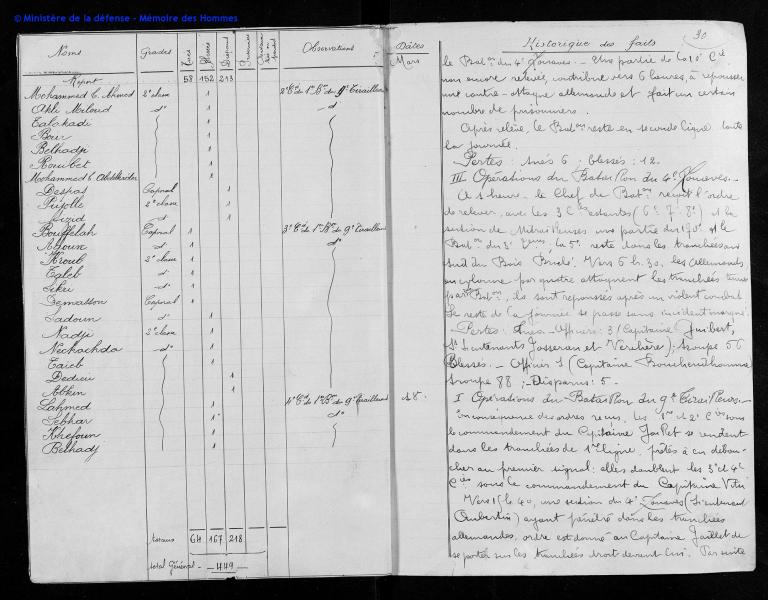 © Ministère de la défense - Mémoire des Hommes
Noms Grades Tués Blessés Disparus Observations
Report 58 152 213
Mohammed b. Ahmed 2e classe 1 2e Cie du 1er Bon du 9e Tirailleurs
Akli Meloud do 1 do
Talakadi 1
Bair 1
Belhadji 1
Rouibet 1
Mohammed b. Abdelkader 1
Despas Caporal 1
Pujolle 2e classe 1
do 1
Bouffelah Caporal 1 3e Cie du 1er Bon du 9e Tirailleurs
do 1 do
Kroub 2e classe 1
Taleb do 1
1
Demasson Caporal 1
Sadoun do 1
Nadji 2e classe 1
Nechachda do 1
Taieb 1
Dedieu 1
1
Lahmed 1 4e Cie du 1er Bon du 9e Tirailleurs
Sebhar 1 do
Khefoun 1
Belhadj 1
totaux 64 167 218
total Général - 449 -
30
Dates Historique des faits
Mars le Baton du 4e Zouaves. - Une partie de la 10e Cie
non encore relevée, contribue vers 6 heures, à repousser
une contre-attaque allemande et fait un certain
nombre de prisonniers.
Après relève, le Baton reste en seconde ligne toute
la journée.
Pertes : tués 6 ; blessés : 12.
III Opérations du Bataillon du 4e Zouaves. -
A 1 heure, le Chef de Baton reçoit l'ordre
de relever, avec les 3 Cies restantes (6e 7e 8e) et la
section de Mitrailleuses une partie du 170e et le
Baton du 3e Zouaves, la 5e reste dans les tranchées au
sud du Bois Brulé. Vers 6 h. 30, les Allemands
en colonne par quatre attaquent les tranchées tenues
par Baton, ils sont repoussés après un violent combat.
Le reste de la journée se passe sans incident marquant.
Pertes : tués - Officiers : 3 (Capitaine Guibert,
Ss Lieutenants Josserand et Verchère) ; troupe 56
Blessés. - Officier 1 (Capitaine Bouchendhomme)
troupe 88 ; - Disparus : 5 -
18. I Opérations du Bataillon du 9e Tirailleurs. -
En conséquence des ordres reçus, les 1ère et 2e Cies sous
le commandement du Capitaine Jaillet se rendent
dans les tranchées de 1ère ligne, prêtes à en débou-
cher au premier signal ; elles doublent les 3e et 4e
Cies sous le commandement du Capitaine
Vers 40, une section du 4e Zouaves (Lieutenant
Aubertin) ayant pénétré dans les tranchées
allemandes, ordre est donné au Capitaine Jaillet de
se porter sur les tranchées droit devant lui. Par suite